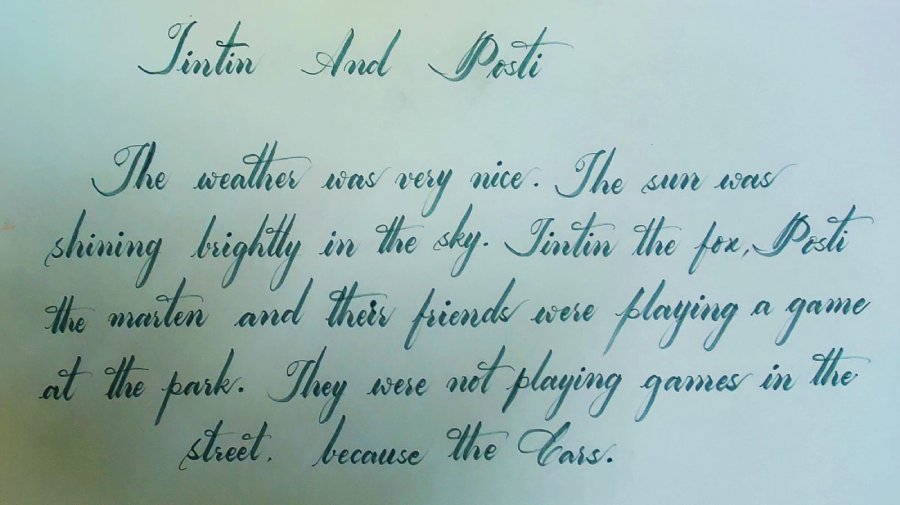 Tintin And Posti
The weather was very nice. The sun was
shining brightly in the sky. Tintin the fox, Posti
the marten and their friends were playing a game
at the park. They were not playing games in the
street. because the Cars.